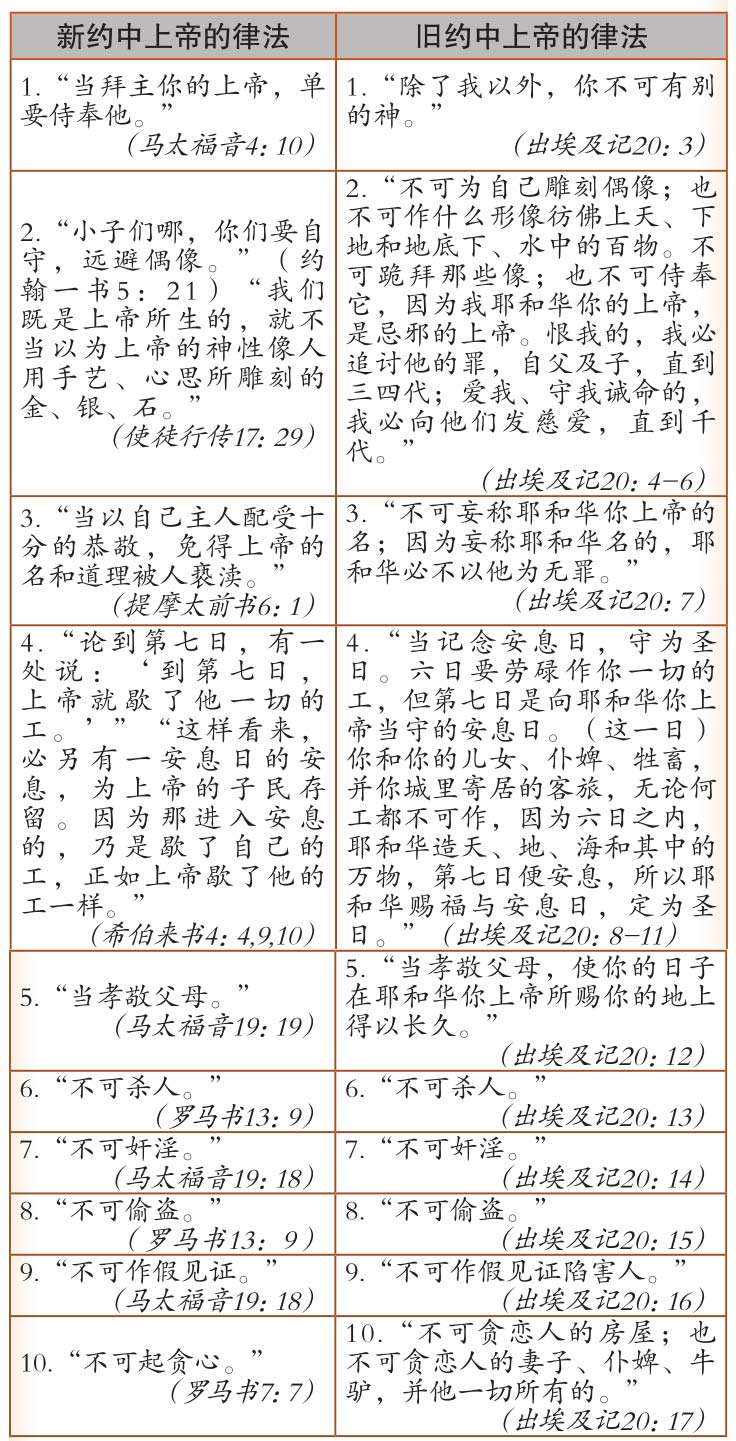 新约中上帝的律法
旧约中上帝的律法
1.“当拜主你的上帝，单
要侍奉他。”
（马太福音4：10）
1.“除了我以外，你不可有别
的神。”
（出埃及记20：3）
2.“小子们哪，你们要自
守，远避偶像。”（约
翰一书5：21）“我们
既是上帝所生的，就不
当以为上帝的神性像人
用手艺、心思所雕刻的
金、银、石。”
（使徒行传17：29）
2.“不可为自己雕刻偶像；也
不可作什么形像彷佛上天、下
地和地底下、水中的百物。不
可跪拜那些像；也不可侍奉
它，因为我耶和华你的上帝，
是忌邪的上帝。恨我的，我必
追讨他的罪，自父及子，直到
三四代；爱我、守我诫命的，
我必向他们发慈爱，直到千
代。”
（出埃及记20：4-6）
3.“当以自己主人配受十
分的恭敬，免得上帝的
名和道理被人亵渎。”
（提摩太前书6：1）
3.“不可妄称耶和华你上帝的
名；因为妄称耶和华名的，耶
和华必不以他为无罪。”
（出埃及记20：7）
4.“论到第七日，有一
处说：‘到第七日，
上帝就歇了他一切的
工。’”“这样看来，
必另有一安息日的安
息，为上帝的子民存
留。因为那进入安息
的，乃是歇了自己的
工，正如上帝歇了他的
工一样。”
（希伯来书4：4,9,10）
4.“当记念安息日，守为圣
日。六日要劳碌作你一切的
工，但第七日是向耶和华你上
帝当守的安息日。（这一日）
你和你的儿女、仆婢、牲畜，
并你城里寄居的客旅，无论何
工都不可作，因为六日之内，
耶和华造天、地、海和其中的
万物，第七日便安息，所以耶
和华赐福与安息日，定为圣
日。”（出埃及记20：8-11）
5.“当孝敬父母。”
（马太福音19：19）
5.“当孝敬父母，使你的日子
在耶和华你上帝所赐你的地上
得以长久。”
（出埃及记20：12）
6.“不可杀人。”
（罗马书13：9）
6.“不可杀人。”
（出埃及记20：13）
7.“不可奸淫。”
（马太福音19：18）
7.“不可奸淫。”
（出埃及记20：14）
8.“不可偷盗。”
（罗马书13：9）
8.“不可偷盗。”
（出埃及记20：15）
9.“不可作假见证。”
（马太福音19：18）
9.“不可作假见证陷害人。”
（出埃及记20：16）
10.“不可起贪心。”
（罗马书7：7）
10.“不可贪恋人的房屋；也
不可贪恋人的妻子、仆婢、牛
驴，并他一切所有的。”
（出埃及记20：17）